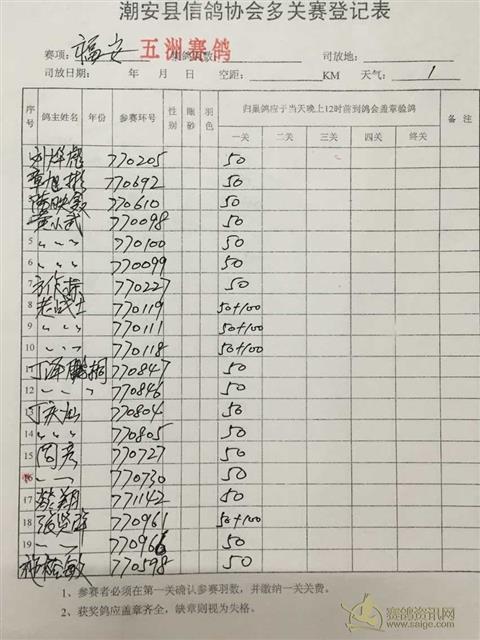 潮安县信鸽协会多关赛登记表
赛项: 福安 五洲赛鸽 司放地:
司放日期: 年 月 日 空距: KM 天气: 1
序号 鸽主姓名 年份 参赛环号 性别 眼砂 羽色 归巢鸽应于当天晚上12时前到鸽会盖章验鸽 备注
一关 二关 三关 四关 终关
770205 50
章旭彬 770692 50
陈映 770610 50
黄小武 770098 50
5 〃 〃 〃 770100 50
6 〃 〃 〃 770099 50
770227 50
8 老战士 770119 50+100
9 〃 〃 〃 770111 50+100
10 〃 〃 〃 770118 50+100
11 丁泽鹏 桐 770847 50
12 〃 〃 〃 770846 50
13 丁庆汕 770804 50
14 〃 〃 〃 770805 50
15 周彦 770727 50
16 〃 〃 770730 50
17 蔡翔 771142 50
18 770961 50+100
19 〃 〃 770966 50
施裕敏 770598 50
1、参赛者必须在第一关确认参赛羽数，并缴纳一关关费。
2、获奖鸽应盖章齐全，缺章则视为失格。
赛鸽资讯网
www.saige.com